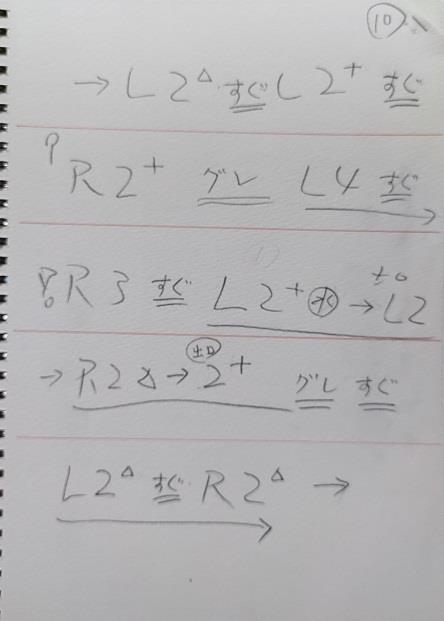 ⑩
→ L2△ すぐ L2+ すぐ
R2+ グレ L4 すぐ
R3 すぐ L2+㊌→L2 ±0
→ R2△→2+ 出口 グレ すぐ
L2△ すぐ R2△ →